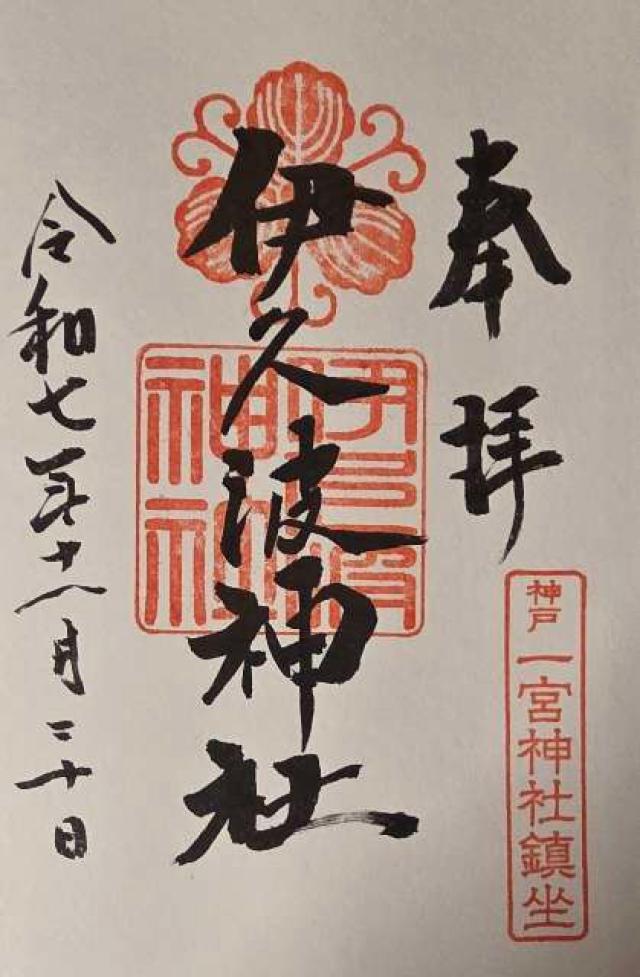 奉拝
神戸 一宮神社鎮坐
伊久波神社
伊久波
神社
令和七年十一月二十日